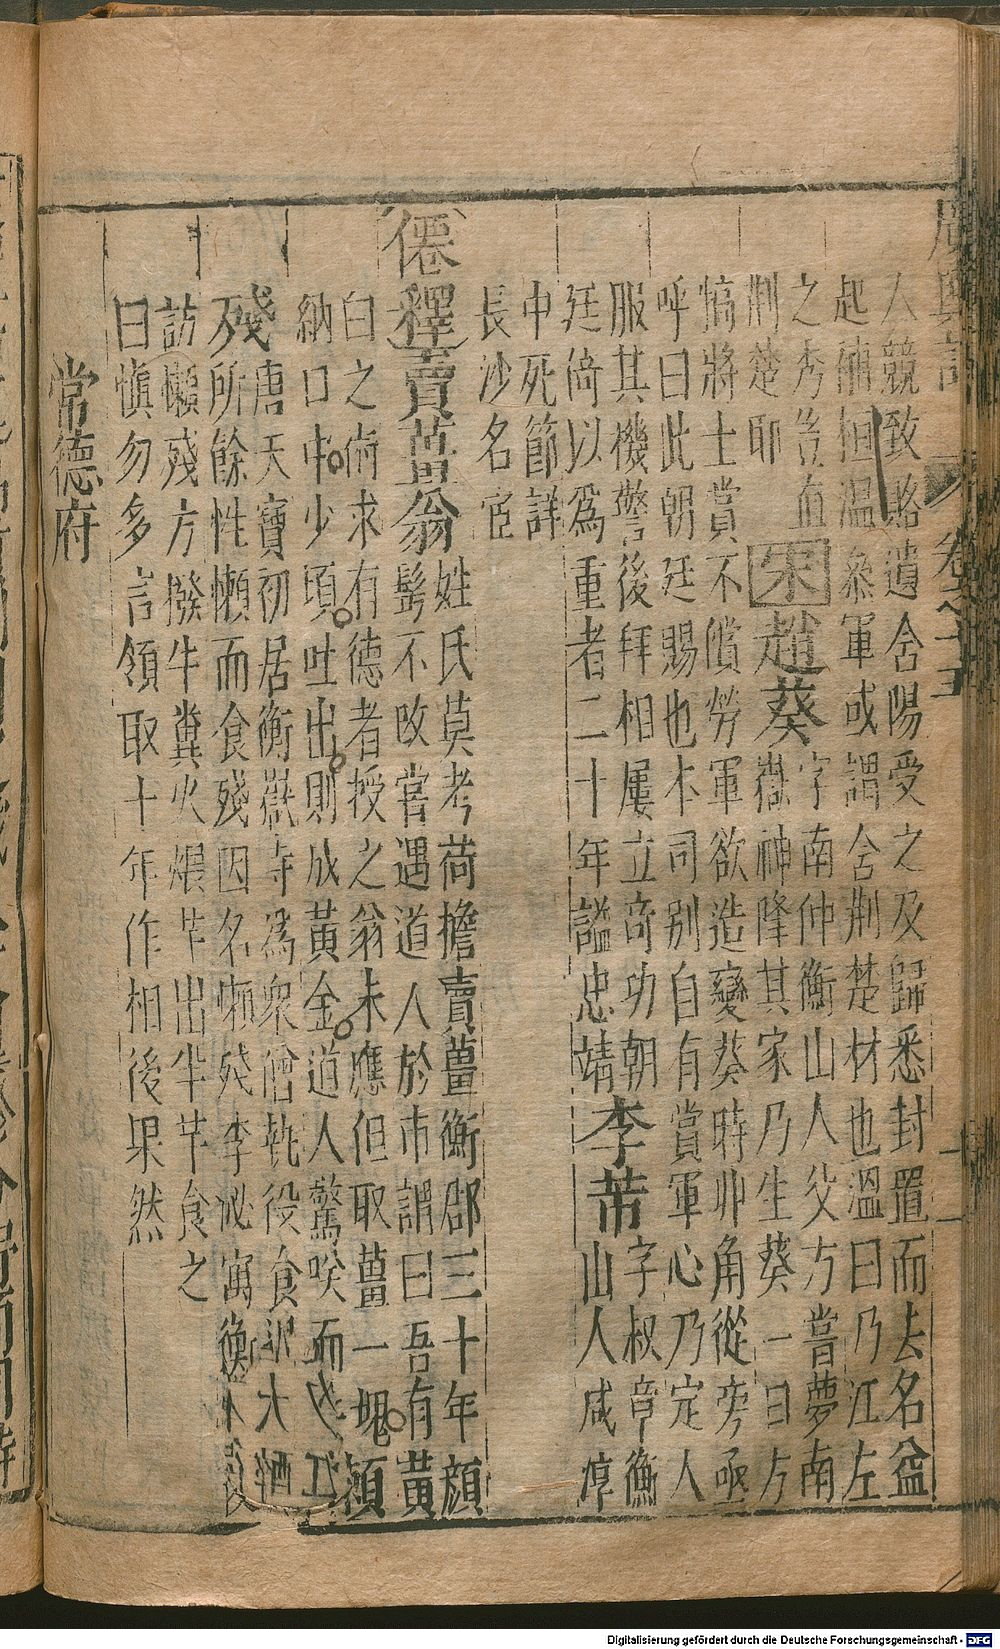 廣輿記 卷之十五 十一
人競致賂遺舍陽受之及歸悉封置而去名益
起補桓溫叅軍或謂舍荆楚材也溫曰乃江左
之秀豈
荆楚耶
宋 趙葵
字南仲衡山人父方嘗夢南
嶽神降其家乃生葵一日方
犒將士賞不償勞軍欲造變葵時丱角從旁亟
呼曰此朝廷賜也本司別自有賞軍心乃定人
服其機警後拜相屢立竒功朝
廷倚以爲重者二十年謚忠靖
李芾
字叔章衡
山人咸淳
中死節詳
長沙名宦
僊釋
賣薑翁
姓氏莫考荷擔賣薑衡郡三十年顔
髩不改嘗遇道人於市謂曰吾有黃
白之術求有德者授之翁未應但取薑一塊
納口中少頃吐出則成黃金道人驚唉而
殘
唐天寶初居衡嶽寺為衆僧執役食退大
所餘性懶而食殘因名懶殘李泌寓衡
訪懶殘方撥牛糞火煨芋出半芋食之
曰慎勿多言領取十年作相後果然
常德府
Digitalisierung gefördert durch die Deutsche Forschungsgemeinschaft - DFG